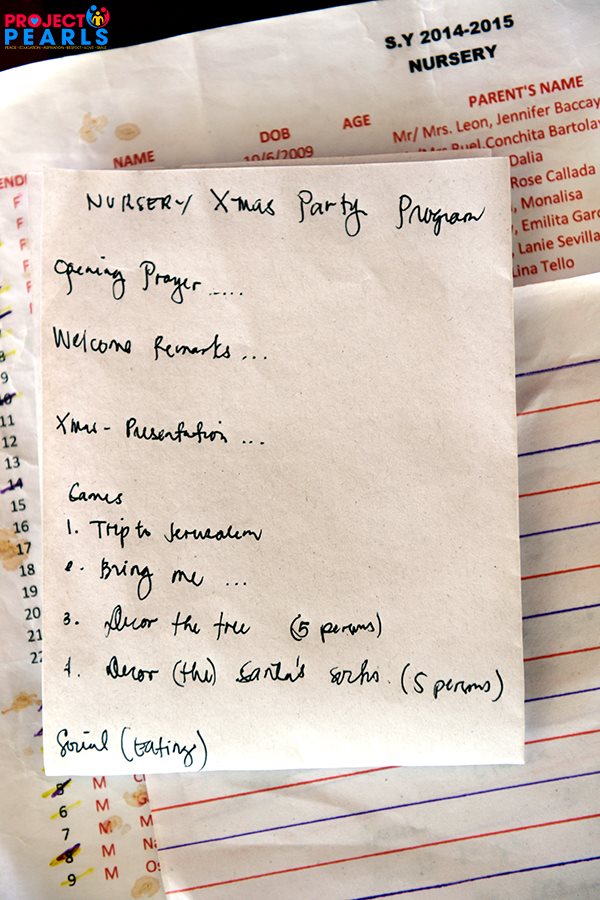 PROJECT
PEARLS
PEACE • EDUCATION • ASPIRATION • RESPECT • LOVE • SMILE
S.Y 2014-2015
NURSERY
NAME
DOB
AGE
PARENT'S NAME
10/6/2009
Mr/ Mrs. Leon, Jennifer Baccay
Mr/Mrs Ruel, Conchita Bartola
Dalia
Rose Callada
, Monalisa
, Emilita Gar
, Lanie Sevilla
Lina Tello
NURSERY Xmas Party Program
Opening Prayer .....
Welcome Remarks ...
Xmas - Presentation ...
Games
1. Trip to Jerusalem
2. Bring me ...
3. Decor the tree (5 persons)
4. Decor (the) Santa's socks. (5 persons)
Social (Eatings)
9
10
11
12
13
14
15
16
17
18
19
20
21
22
5 M
6 M
7 M
8 M
9 M Os